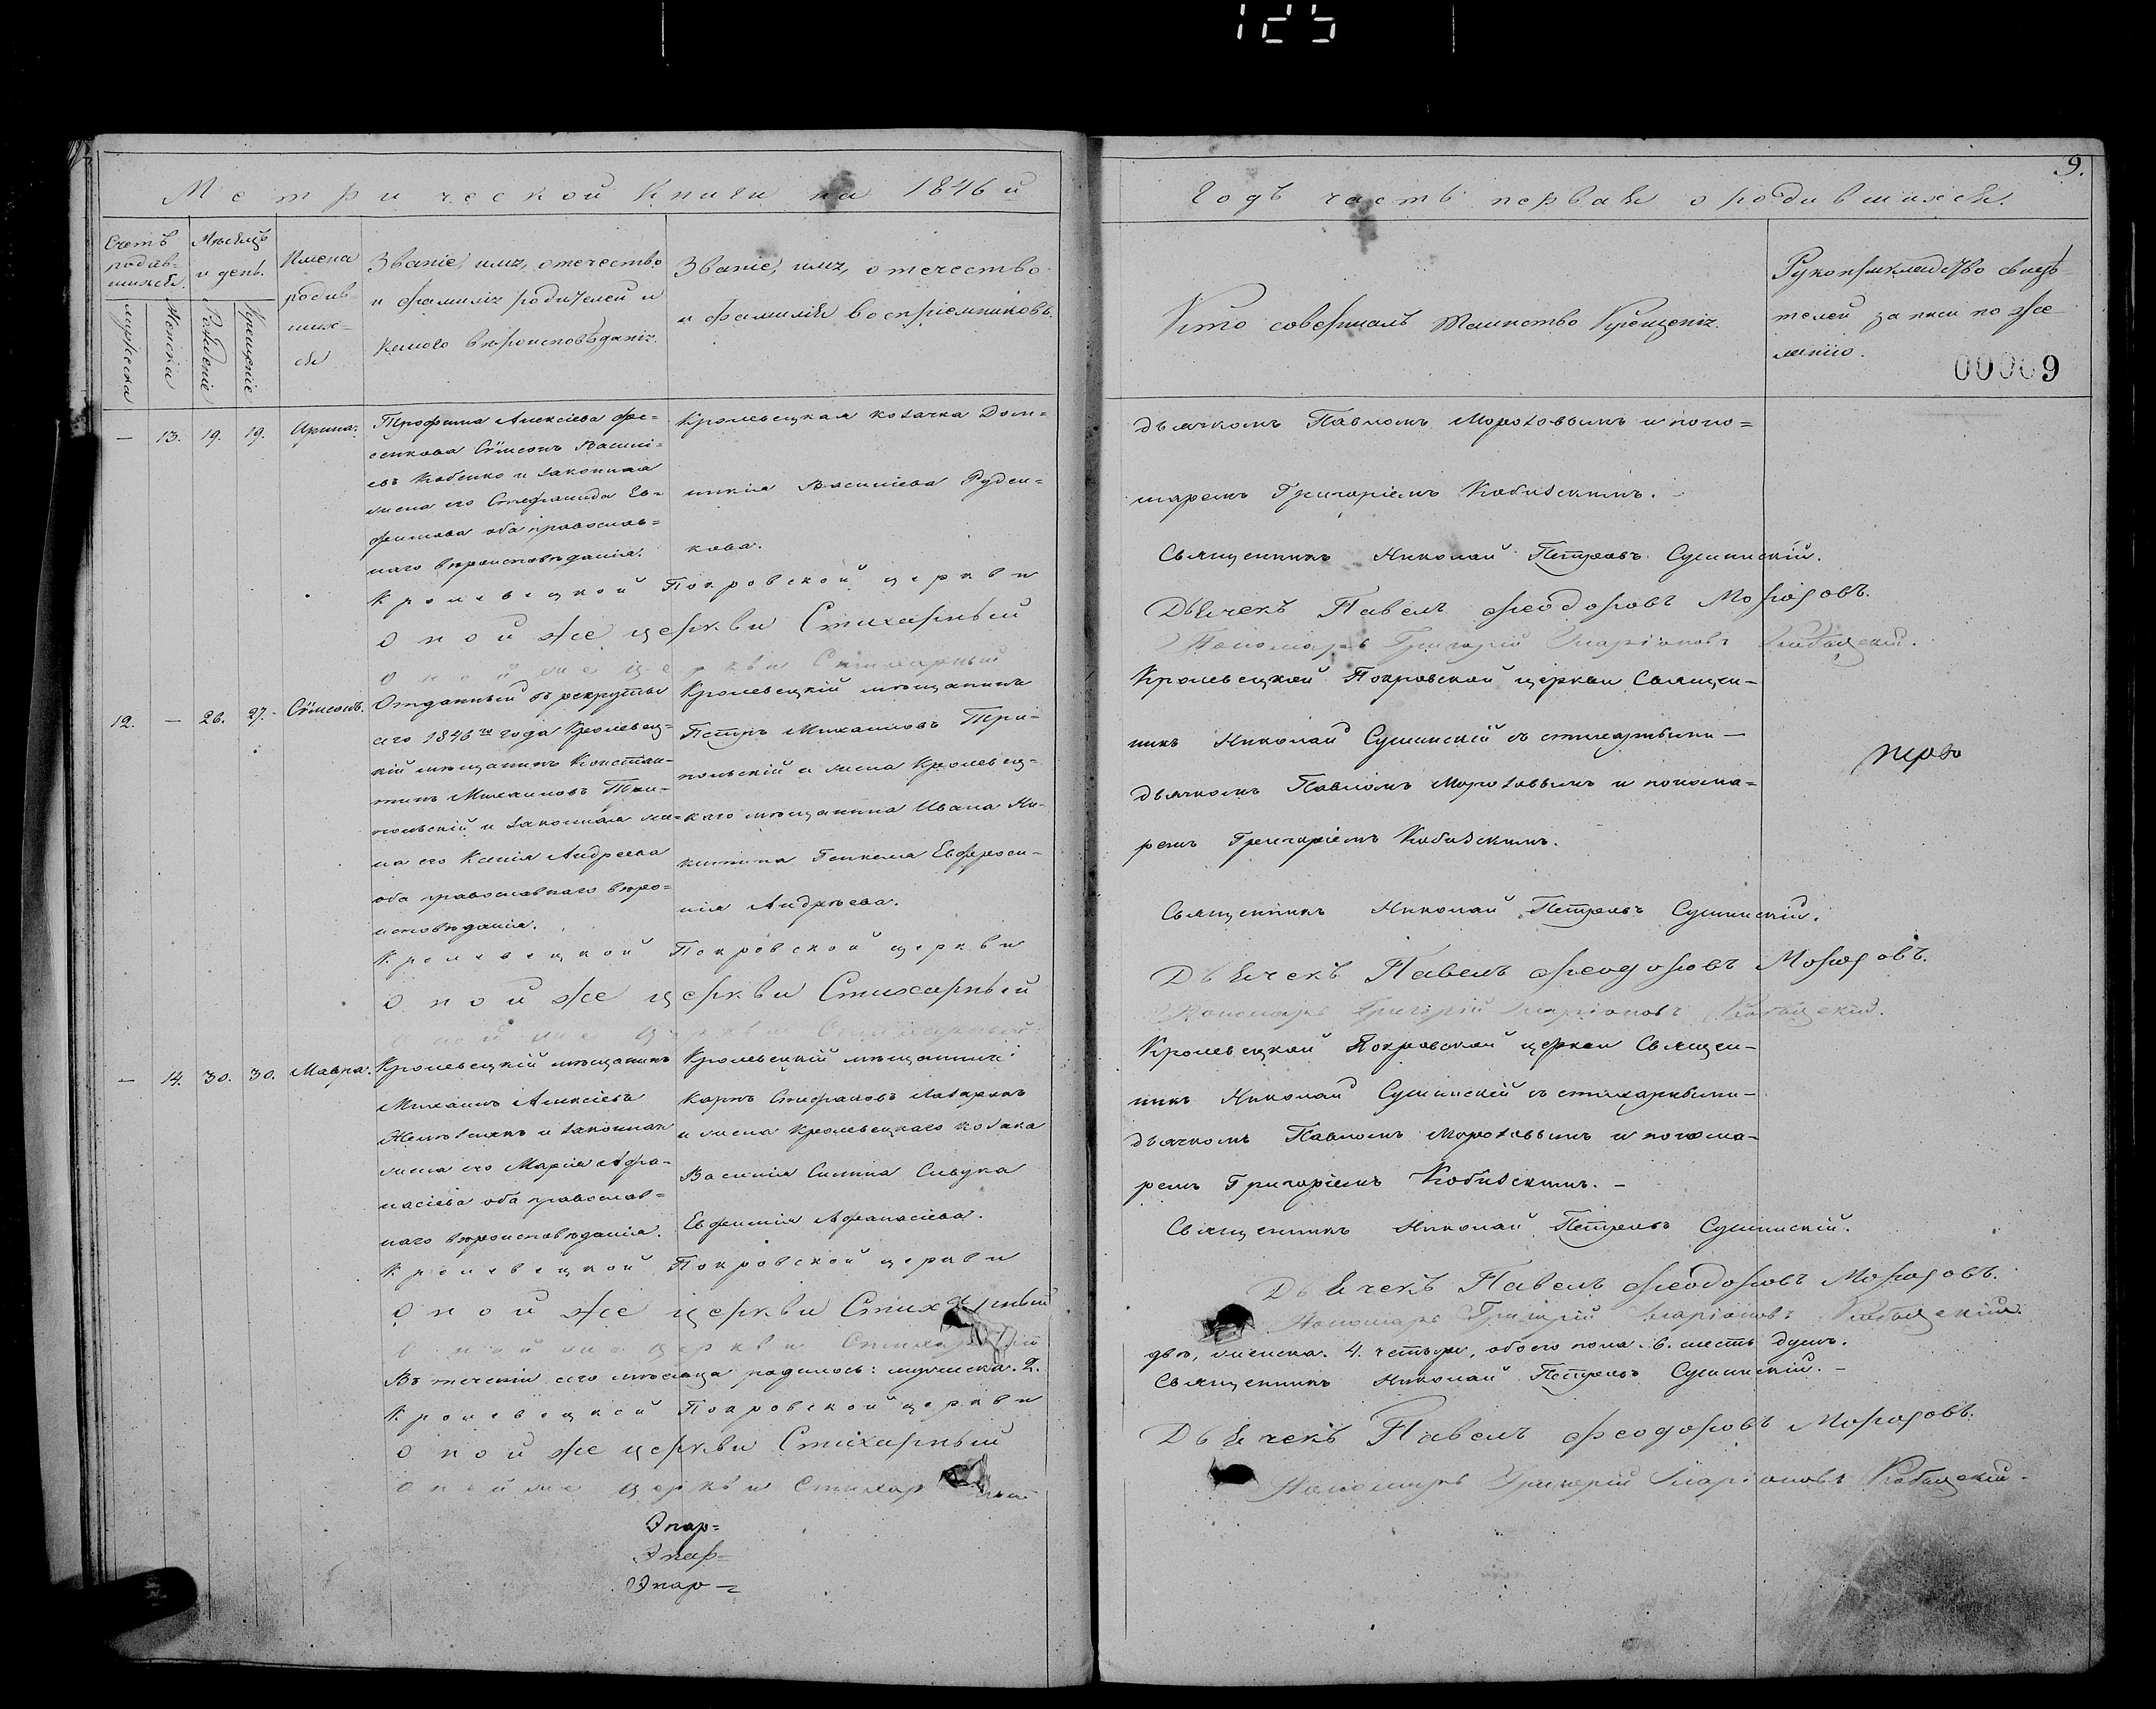 125
9.
Метрической Книги на 1846й
Годъ часть первая о родившихся.
Счетъ родив-
шихся.
Мѣсяцъ
и день.
Имена
родив-
ших-
ся
Званіе, имя, отечество
и фамилія родителей и
какого вѣроисповѣданія.
Званіе, имя, отечество
и фамилія воспріемниковъ.
Кто совершалъ таинство Крещенія.
Рукоприкладство свидѣ-
телей записи по же-
ланію.
мужеска
женска
Рожденіе
Крещеніе
00009
— 13. 19. 19. Ирина.
Трофима Алексіева Фе-
сенкова Сѵмеонъ Васілі-
евъ Кобенко и законная
жена его Стефанида Ев-
фимова оба православ-
наго вѣроисповѣданія.
Кролевецкая козачка Дом-
никія Василіева Руден-
кова.
дьячкомъ Павломъ Морозовымъ и поно-
маремъ Григоріемъ Кобизскимъ.
Кролевецкой Покровской церкви
Священникъ Николай Петровъ Сушинскій.
Оной же церкви Стихарный
Дьячекъ Павелъ Феодоровъ Морозовъ.
Оной же церкви Стихарный
Пономарь Григорій Иларіоновъ Кобизскій.
12. — 26. 27. Сѵмеонъ.
Отданный въ рекруты
сего 1846го года Кролевец-
кій мѣщанинъ Констан-
тинъ Михаиловъ Три-
польскій и законная же-
на его Ксенія Андреева
оба православнаго вѣро-
исповѣданія.
Кролевецкій мѣщанинъ
Петръ Михаиловъ Три-
польскій и жена Кролевец-
каго мѣщанина Ивана Ни-
китина Евфроси-
нія Андрѣева.
Кролевецкой Покровской церкви Священ-
никъ Николай Сушинскій съ стихарными
дьячкомъ Павломъ Морозовымъ и понома-
ремъ Григоріемъ Кобизскимъ.
Кролевецкой Покровской церкви
Священникъ Николай Петровъ Сушинскій.
Оной же церкви Стихарный
Дьячекъ Павелъ Феодоровъ Морозовъ.
Оной же церкви Стихарный
Пономарь Григорій Иларіоновъ Кобизскій.
— 14. 30. 30. Мавра.
Кролевецкій мѣщанинъ
Михаилъ Алексіевъ
и законная
жена его Марія Афа-
насіева оба православ-
наго вѣроисповѣданія.
Кролевецкій мѣщанинъ
Карпъ Стефановъ Лазаренк
и жена Кролевецкаго козака
Василія Силина
Евфимія Афанасіева.
Кролевецкой Покровской церкви Священ-
никъ Николай Сушинскій съ стихарными
дьячкомъ Павломъ Морозовымъ и понома-
ремъ Григоріемъ Кобизскимъ.
Кролевецкой Покровской церкви
Священникъ Николай Петровъ Сушинскій.
Оной же церкви Стихарный
Дьячекъ Павелъ Феодоровъ Морозовъ.
Оной же церкви Стихарный
Пономарь Григорій Иларіоновъ Кобизскій.
Въ теченіи сего мѣсяца родилось: мужеска. 2.
двѣ, женска. 4. четыре, обоего пола. 6. шесть душъ.
Кролевецкой Покровской церкви
Священникъ Николай Петровъ Сушинскій.
Оной же церкви Стихарный
Дьячекъ Павелъ Феодоровъ Морозовъ.
Оной же церкви Стихарный
Пономарь Григорій Иларіоновъ Кобизскій.